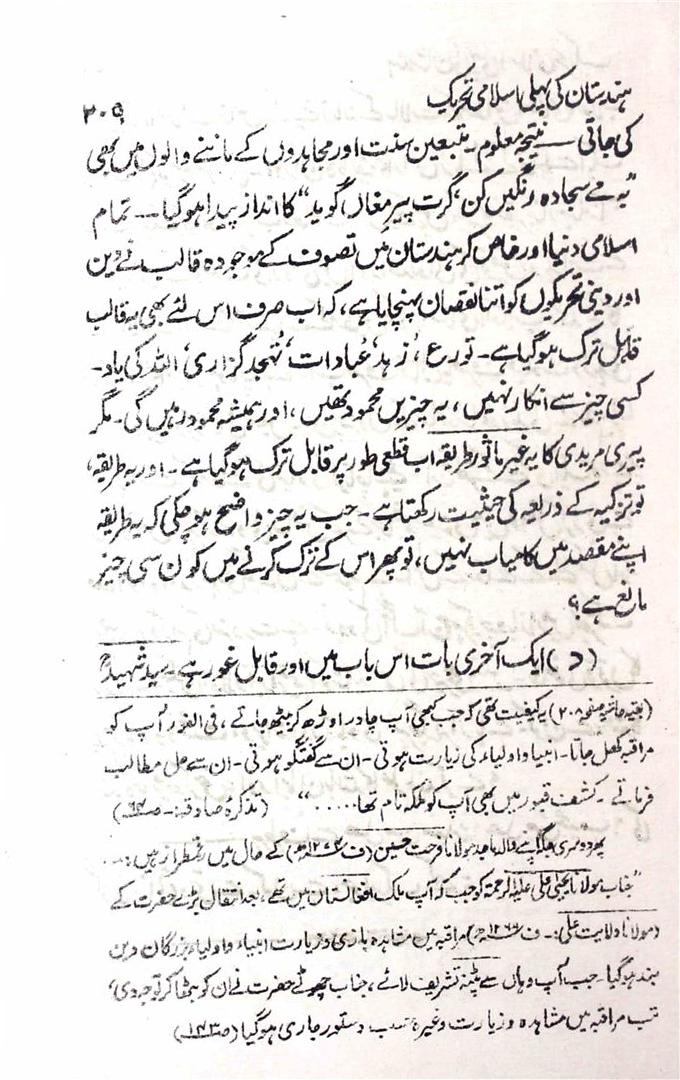 ہندستان کی پہلی اسلامی تحریک
۲۰۹
کی جاتی ــــ نتیجہ معلوم۔ متبعین سنت اور مجاہدوں کے ماننے والوں میں بھی
”بہ مے سجادہ رنگیں کن، گرت پیر مغاں گوید“ کا انداز پیدا ہوگیا ــــ تمام
اسلامی دنیا اور خاص کر ہندستان میں تصوف کے موجودہ قالب نے دین
اور دینی تحریکوں کو اتنا نقصان پہنچایا ہے، کہ اب صرف اس لئے بھی یہ قالب
قابل ترک ہوگیا ہے۔ تورع، زہد، عبادات، تہجد گزاری، اللہ کی یاد۔
کسی چیز سے انکار نہیں، یہ چیزیں محمود تھیں، اور ہمیشہ محمود رہیں گی۔ مگر
پیری مریدی کا یہ غیر ماثور طریقہ اب قطعی طور پر قابل ترک ہوگیا ہے۔ اور یہ طریقہ،
تو تزکیہ کے ذریعہ کی حیثیت رکھتا ہے۔ جب یہ چیز واضح ہو چکی کہ یہ طریقہ
اپنے مقصد میں کامیاب نہیں، تو پھر اس کے ترک کرنے میں کون سی چیز
مانع ہے؟
(د) ایک آخری بات اس باب میں اور قابل غور ہے۔ سید شہیدؒ
(بقیہ حاشیہ صفحہ ۲۰۸) یہ کیفیت تھی کہ جب کبھی آپ چادر اوڑھ کر بیٹھ جاتے، فی الفور آپ کو
مراقبہ کھل جاتا۔ انبیا و اولیاء کی زیارت ہوتی۔ ان سے گفتگو ہوتی۔ ان سے حل مطالب
فرماتے۔ کشف قبور میں بھی آپ کو ملکہ تام تھا.....“ (تذکرۂ صادقہ:۔ ص
پھر دوسری جگہ اپنے والد ماجد مولانا فرحت حسین (ف ۱۲۷۴ھ) کے حال میں رقمطراز ہیں:...
”جناب مولانا یحییٰ علی علیہ الرحمۃ کو جب کہ آپ ملک افغانستان میں تھے، بعد انتقال بڑے حضرت کے
(مولانا ولایت علی:۔ ف ۱۲۶۹ھ) مراقبہ میں مشاہدہ بازی و زیارت انبیاء و اولیاء بزرگان دین
بند ہوگیا۔ جب آپ وہاں سے پٹنہ تشریف لائے، جناب چھوٹے حضرت نے ان کو بٹھا کر توجہ دی،
تب مراقبہ میں مشاہدہ و زیارت وغیرہ حسب دستور جاری ہوگیا (ص ۱۴۳)